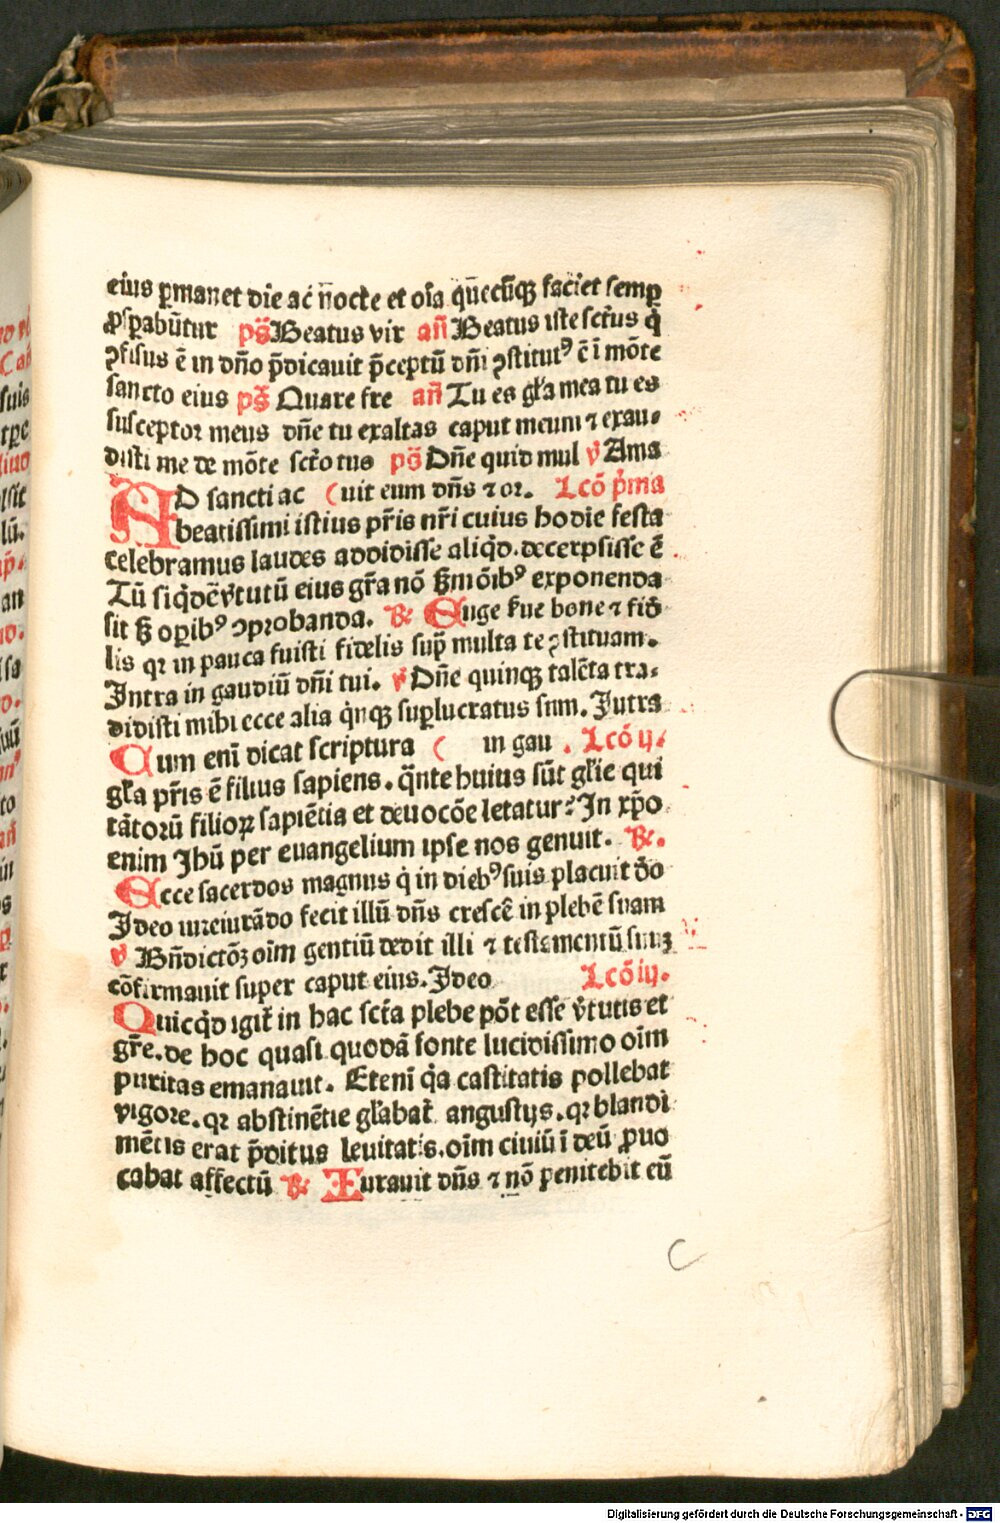 eius ꝑmanet die ac nocte et oīa quecūqꝫ faciet semꝑ
ꝓsꝑabūtur pš Beatus vir añ Beatus iste sctūs q̇
ꝯfisus ē in dño p̄dicauit p̄ceptū dñi ꝯstitutꝰ ē ī mōte
sancto eius pš Quare fre añ Tu es gl̄a mea tu es
susceptor meus dñe tu exaltas caput meum ⁊ exau-
disti me de mōte sctō tuo pš Dñe quid mul v̄ Ama
AD sancti ac ( uit eum dñs ⁊ or. Lcō p̄ma
beatissimi istius pr̄is nr̄i cuius hodie festa
celebramus laudes addidisse aliq̇d. decerpsisse ē
Tū siq̇dē v̄tutū eius gr̄a nō s̄mōibꝰ exponenda
sit s̄ oꝑibꝰ ꝯprobanda. ꝶ Euge s̄ue bone ⁊ fid
lis qꝛ in pauca fuisti fidelis sup̄ multa te ꝯstituam.
Intra in gaudiū dñi tui. v̄ Dñe quinqꝫ talēta tra-
didisti mihi ecce alia q̇nqꝫ suꝑlucratus sum. Intra
Cum enī dicat scriptura ( in gau. Lcō ij.
gl̄a pr̄is ē filius sapiens. q̄nte huius sūt gl̄ie qui
tātorū filioꝝ sapiētia et deuocōe letatur? In xp̄o
enim Ihū per euangelium ipse nos genuit. ꝶ.
Ecce sacerdos magnus q̇ in diebꝰ suis placuit dō
Ideo iureiurādo fecit illū dñs crescē in plebē suam
v̄ Bn̄dictōꝫ oīm gentiū dedit illi ⁊ testamentū suuꝫ
cōfirmauit super caput eius. Ideo Lcō iij.
Quicq̇d igit̄ in hac sctā plebe pōt esse v̄tutis et
gr̄e. de hoc quasi quodā fonte lucidissimo oīm
puritas emanauit. Etenī q̇a castitatis pollebat
vigore. qꝛ abstinētie gl̄abat̄ angustijs. qꝛ blandi
mētis erat p̄ditus leuitatis. oīm ciuiū ī deū ꝓuo
cabat affectū ꝶ Iurauit dñs ⁊ nō penitebit eū
C
Digitalisierung gefördert durch die Deutsche Forschungsgemeinschaft - DFG